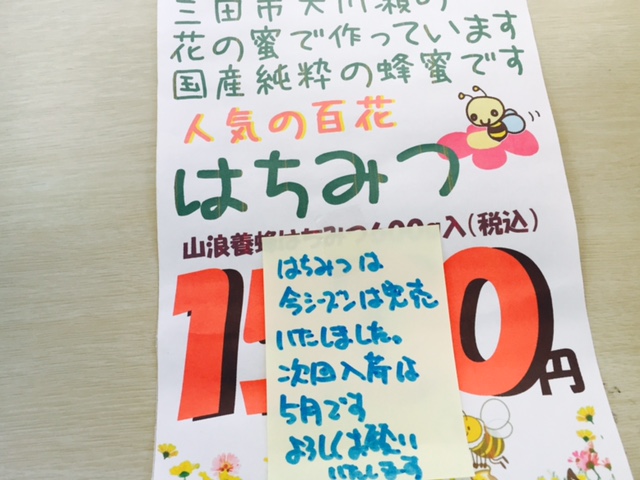 三田市大川瀬の
花の蜜で作っています
国産純粋の蜂蜜です
人気の百花
はちみつ
山浪養蜂はちみつ600g入(税込)
15 0円
はちみつは
今シーズンは完売
いたしました。
次回入荷は
5月です
よろしくお願い
いたします